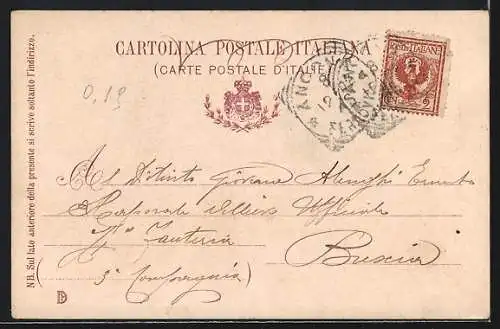 CARTOLINA POSTALE ITALIANA
(CARTE POSTALE D'ITALIE)
0,19
ANCONA
POSTE ITALIANE
NB. Sul lato anteriore della presente si scrive soltanto l'indirizzo.
Al Distinto Giovane
Caporale Allievo Ufficiale
Fanteria
Brescia
5ª Compagnia)